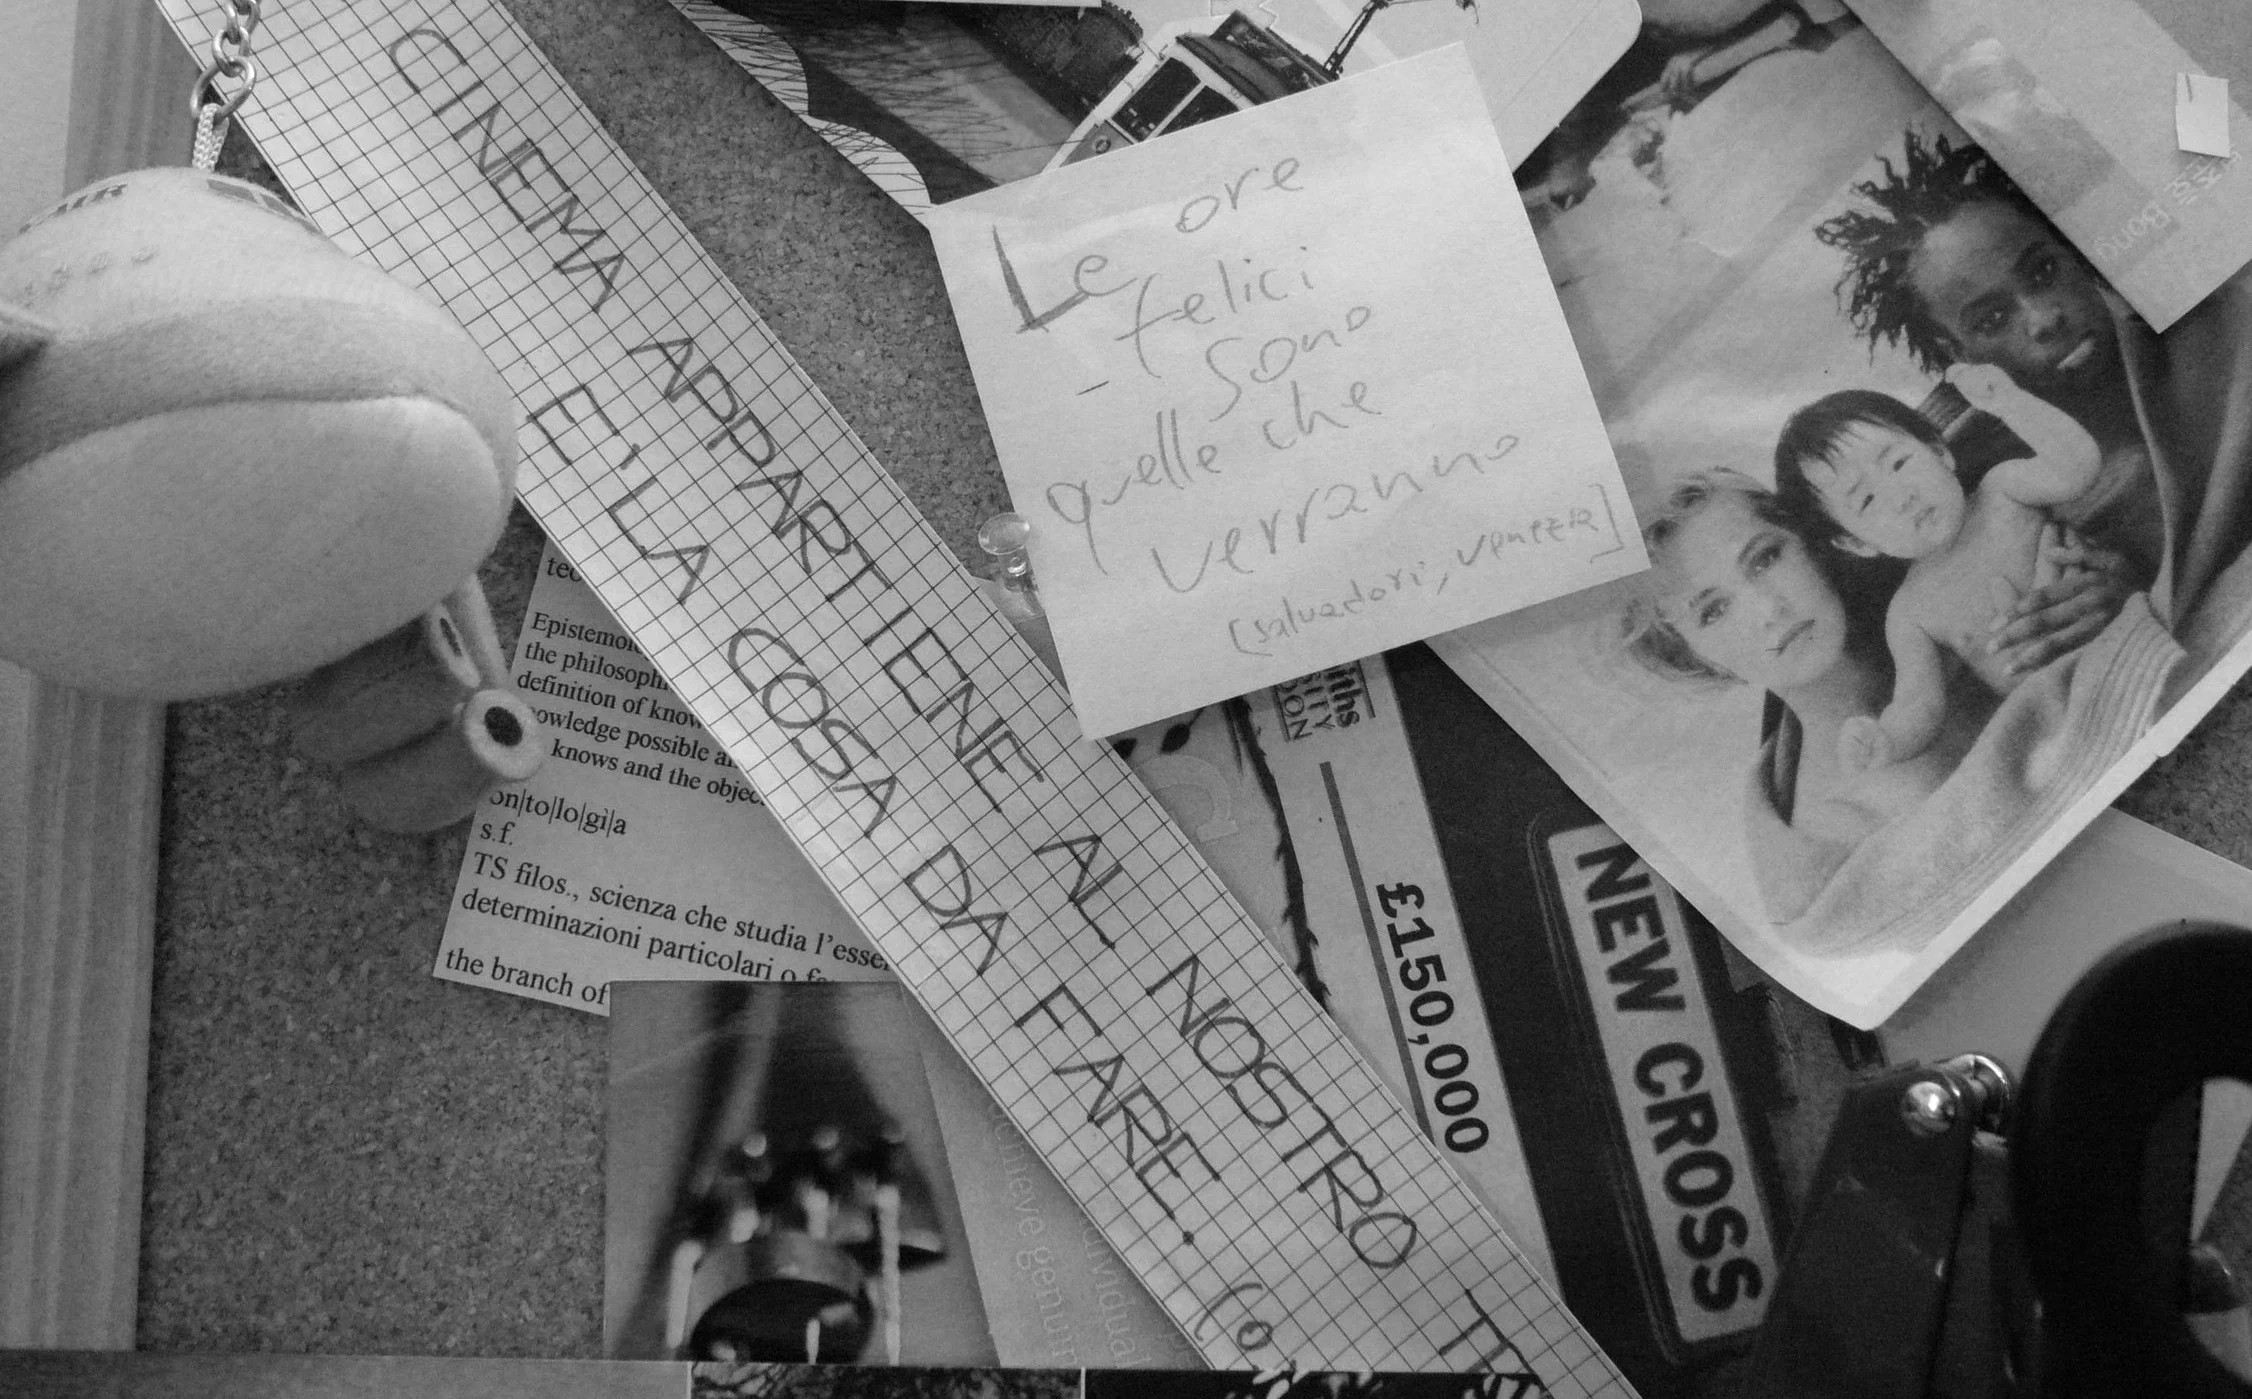 CINEMA APPARTIENE AL NOSTRO
E' LA COSA DA FARE. (Co
Le ore
felici
sono
quelle che
verranno
[salvadori, venezia]
the philosoph
definition of know
owledge possible a
knows and the objec
on|to|lo|gì|a
s.f.
TS filos., scienza che studia l'esse
determinazioni particolari o
the branch of
£150,000
NEW CROSS
Bong
hieve genuin
dividual